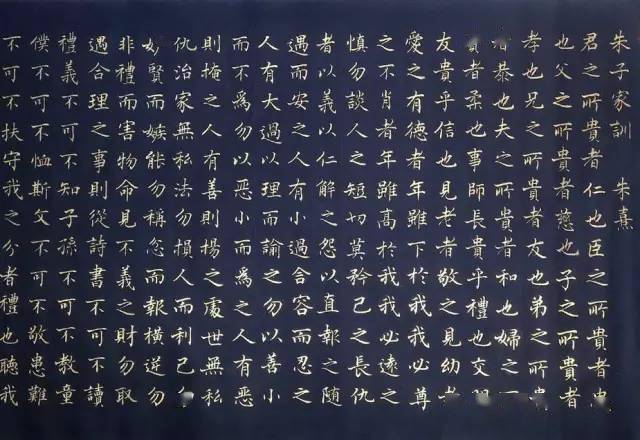 朱子家訓 朱熹
君之所貴者仁也臣之所貴者忠
也父之所貴者慈也子之所貴者
孝也兄之所貴者友也弟之所
恭也夫之所貴者和也婦之
貴者柔也事師長貴乎禮也交
友貴乎信也見老者敬之見幼者
愛之有德者年雖下於我我必尊
之不肖者年雖高於我我必遠之
慎勿談人之短切莫矜己之長仇
者以義以仁解之怨以直報之隨
遇而安之人有小過含容而忍之
人有大過以理而諭之勿以善小
而不為勿以惡小而為之人有惡
則掩之人有善則揚之處世無私
仇治家無私法勿損人而利己
妒賢而嫉能勿稱忿而報橫逆勿
非禮而害物命見不義之財勿取
遇合理之事則從詩書不可不讀
禮義不可不知子孫不可不教童
僕不可不恤斯文不可不敬患難
不可不扶守我之分者禮也聽我